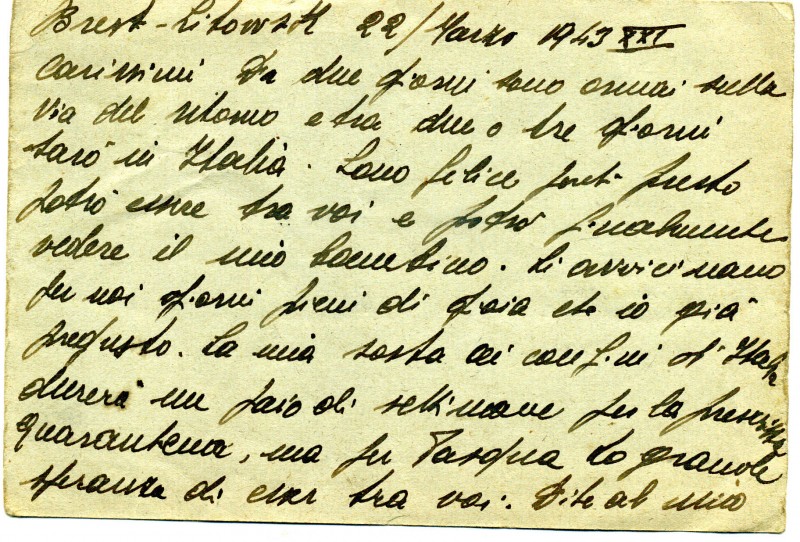 Brest-Litowsk 22/Marzo 1943 XXI
Carissimi Da due giorni sono ormai sulla
via del ritorno e tra due o tre giorni
sarò in Italia. Sono felice perché presto
potrò essere tra voi e potrò finalmente
vedere il mio bambino. Si avvicinano
per noi giorni pieni di gioia che io già
pregusto. La mia sosta ai confini d'Italia
durerà un paio di settimane per la prescritta
quarantena, ma per Pasqua ho grande
speranza di esser tra voi. Dite al mio